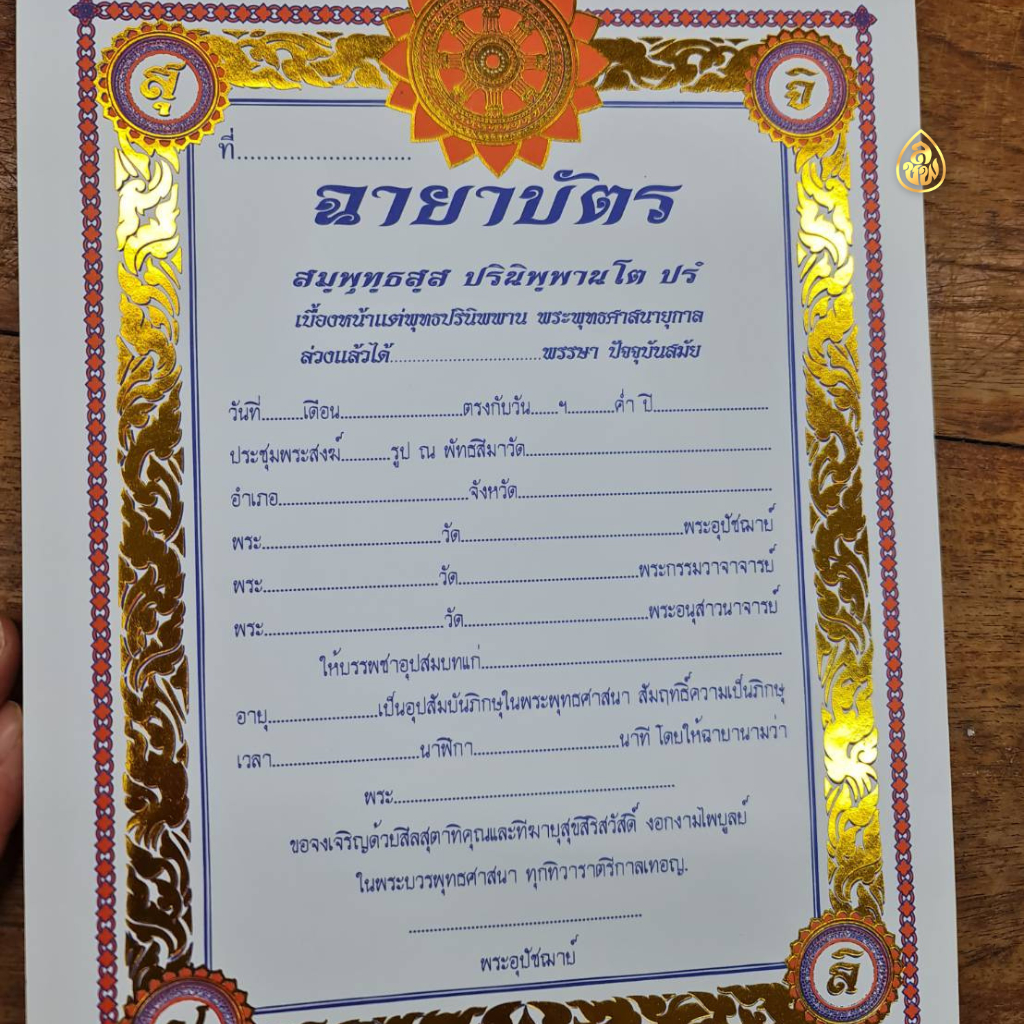 สุ
จิ
ที่..............................
ฉายาบัตร
สมฺพุทฺธสฺส ปรินิพฺพานโต ปรํ
เบื้องหน้าแต่พุทธปรินิพพาน พระพุทธศาสนายุกาล
ล่วงแล้วได้..............................พรรษา ปัจจุบันสมัย
วันที่.........เดือน..........................ตรงกับวัน......ฯ..........ค่ำ ปี.........................
ประชุมพระสงฆ์...........รูป ณ พัทธสีมาวัด.....................................................
อำเภอ........................................จังหวัด......................................................
พระ.......................................วัด................................................พระอุปัชฌาย์
พระ.......................................วัด.......................................พระกรรมวาจาจารย์
พระ.......................................วัด.......................................พระอนุสาวนาจารย์
ให้บรรพชาอุปสมบทแก่................................................................
อายุ........................เป็นอุปสัมบันภิกษุในพระพุทธศาสนา สัมฤทธิ์ความเป็นภิกษุ
เวลา................................นาฬิกา................................นาที โดยให้ฉายานามว่า
พระ............................................................
ขอจงเจริญด้วยสีลสุตาทิคุณและทีฆายุสุขสิริสวัสดิ์ งอกงามไพบูลย์
ในพระบวรพุทธศาสนา ทุกทิวาราตรีกาลเทอญ.
..................................................
พระอุปัชฌาย์
ลิ